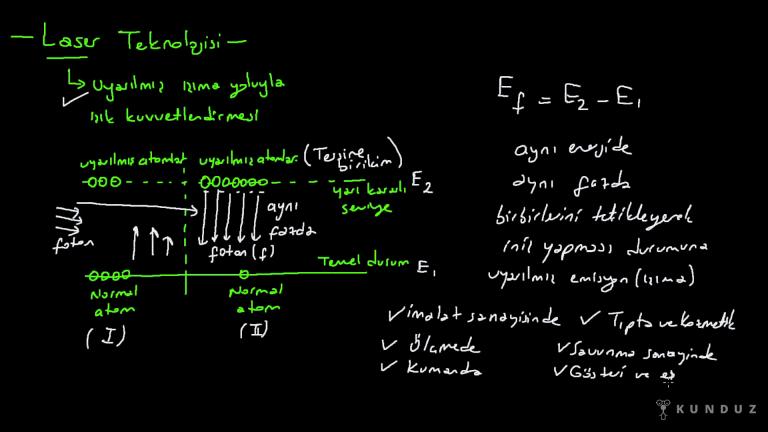 — Laser Teknolojisi —
Uyarılmış ışıma yoluyla
ışık kuvvetlendirmesi
uyarılmış atomlar
uyarılmış atomlar (Tersine birikim)
E2
yarı kararlı
seviye
foton
aynı
fazda
foton (f)
Temel durum E1
Normal
atom
(I)
Normal
atom
(II)
Ef = E2 - E1
aynı enerjide
aynı fazda
birbirlerini tetikleyerek
iniş yapması durumuna
uyarılmış emisyon (ışıma)
✓ imalat sanayisinde
✓ Tıpta ve kozmetik
✓ Ölçmede
✓ Savunma sanayinde
✓ Kumanda
✓ Gösteri ve
KUNDUZ